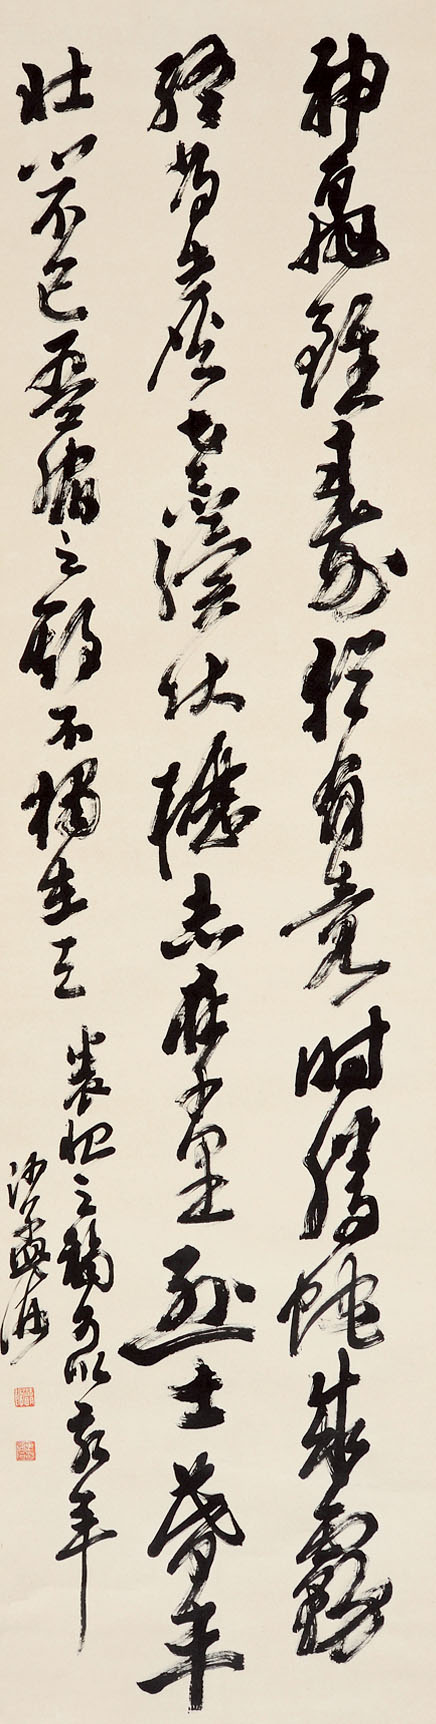 神龜雖壽猶有竟時騰蛇成霧
終為土灰老驥伏櫪志在千里烈士暮年
壯心不已盈縮之期不獨在天養怡之福可以永年
沙孟海